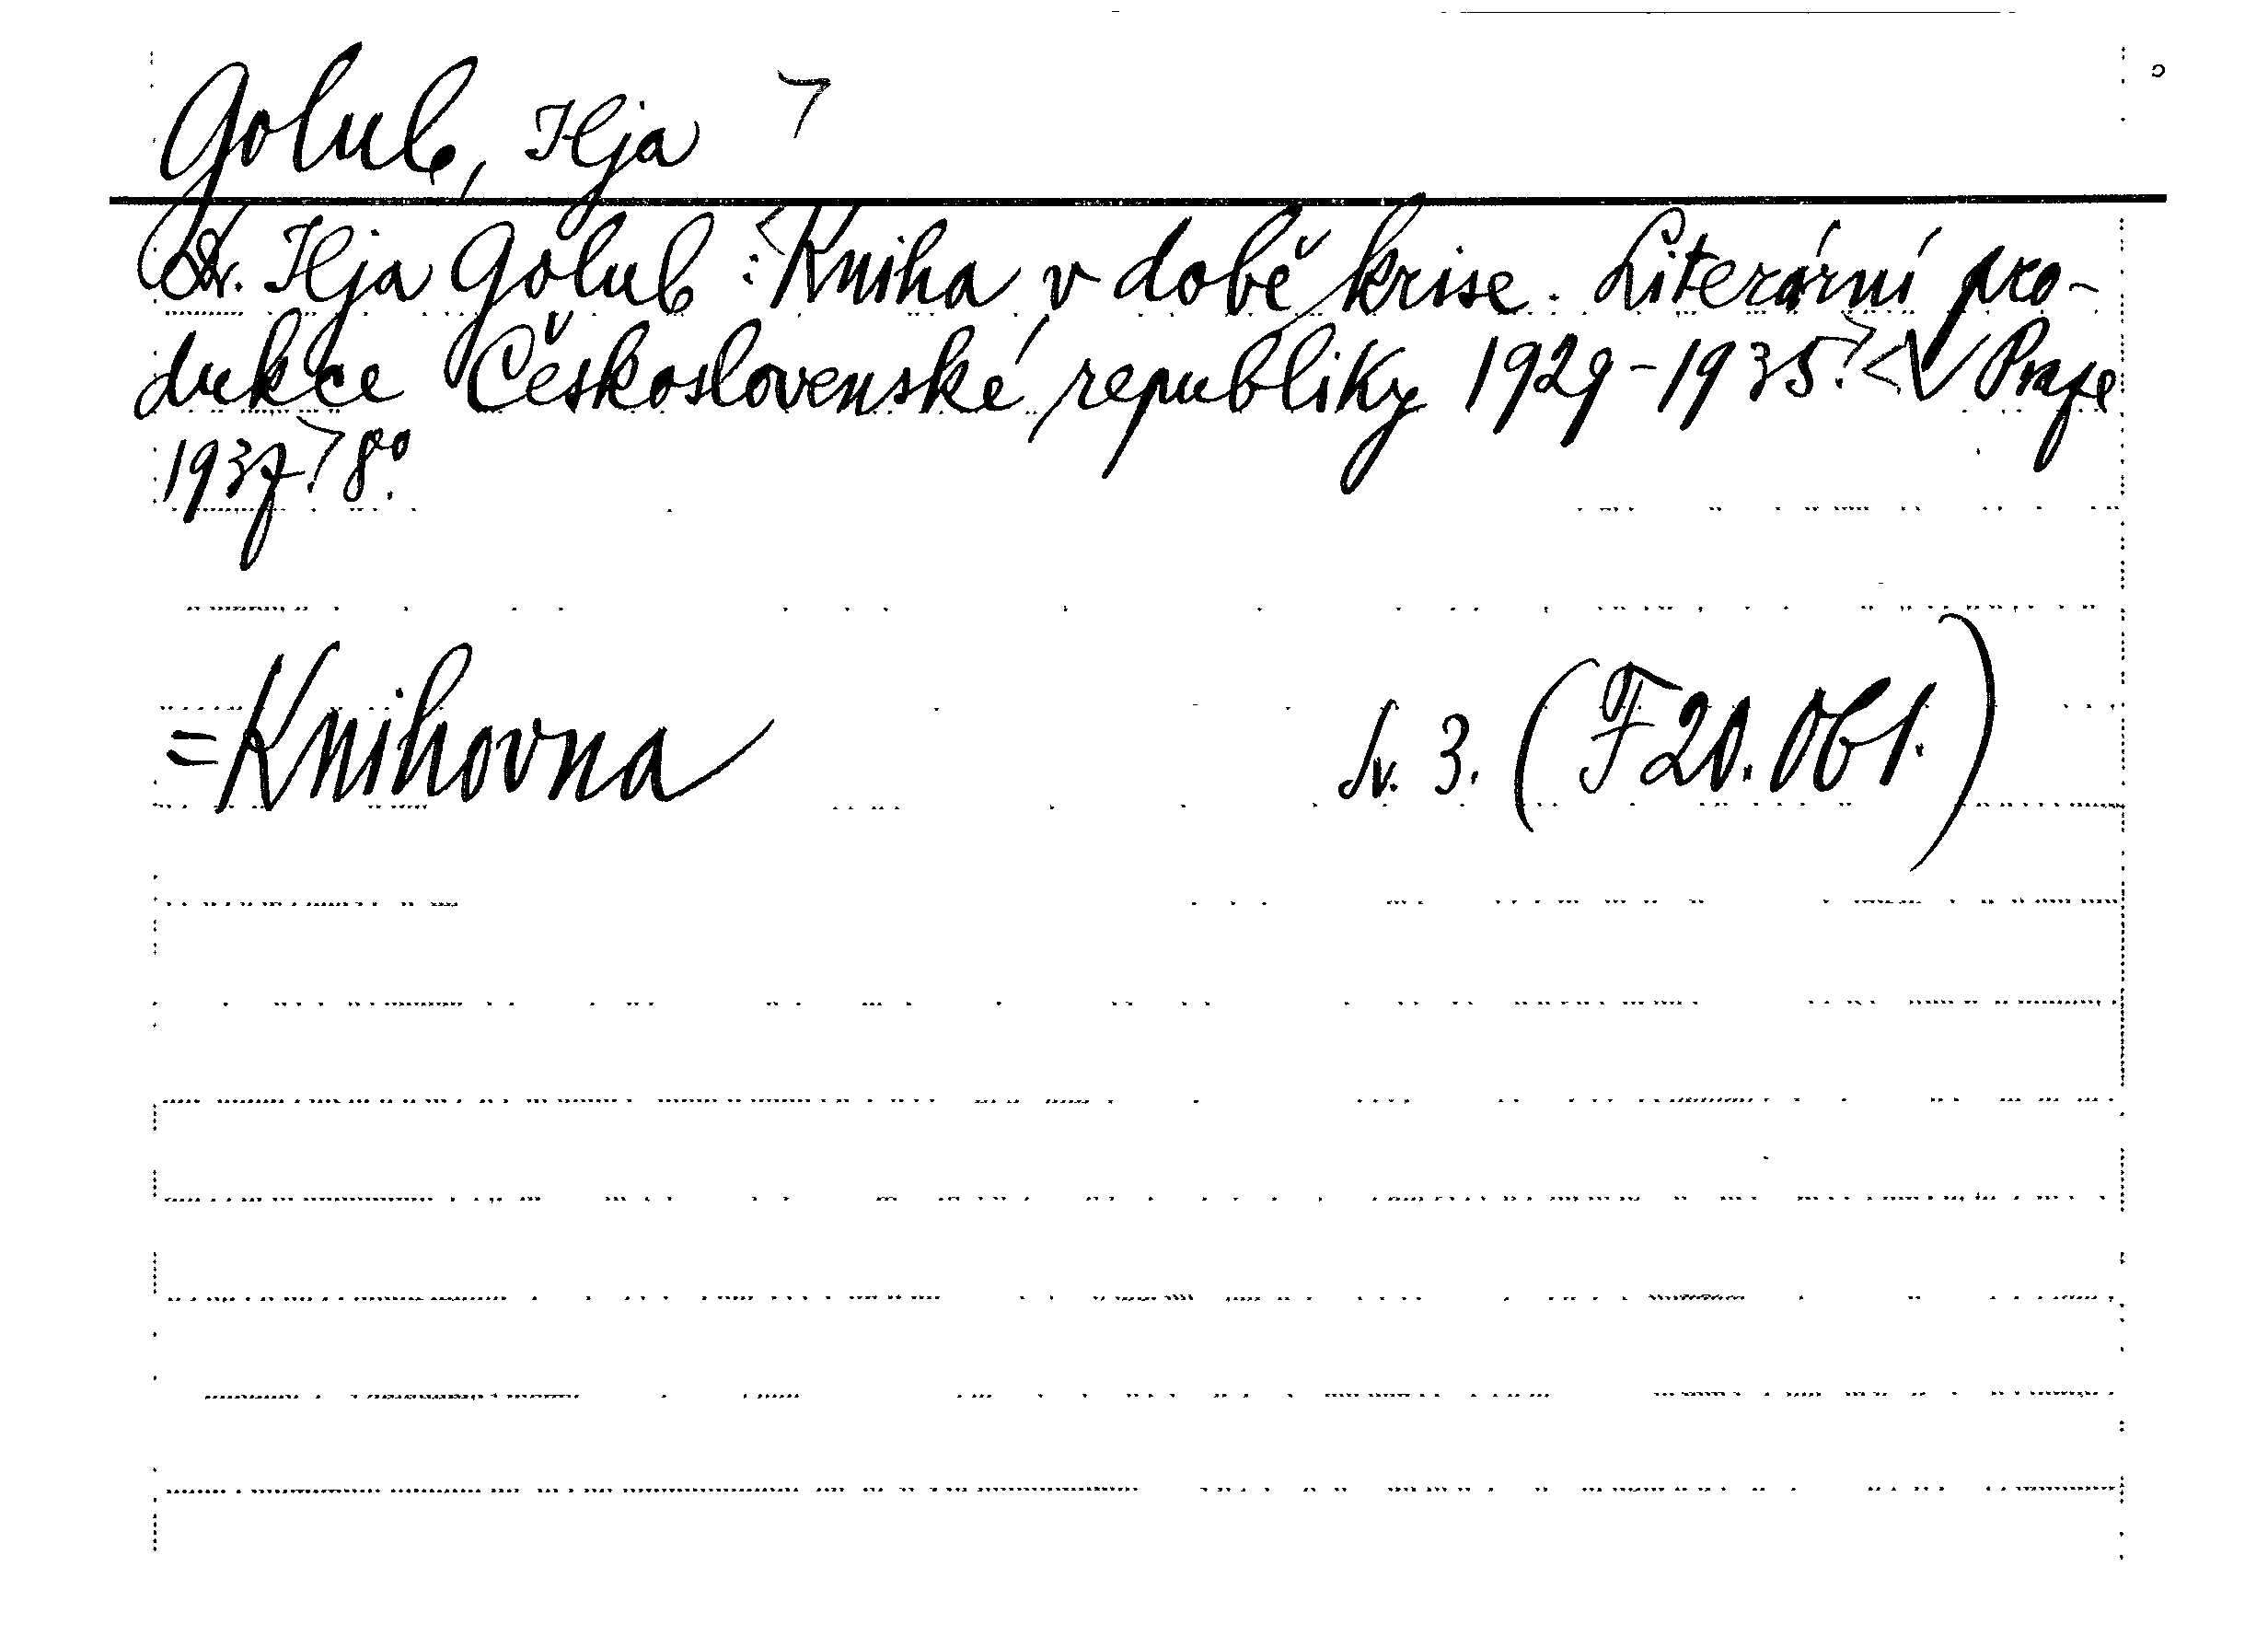 Golub, Ilja ┐
Dr. Ilja Golub: <Kniha v době krise. Literární pro-
dukce Československé republiky 1929-1935.> <V Praze
1937.> 8°.
=Knihovna Sv. 3. (F20.Obl.)